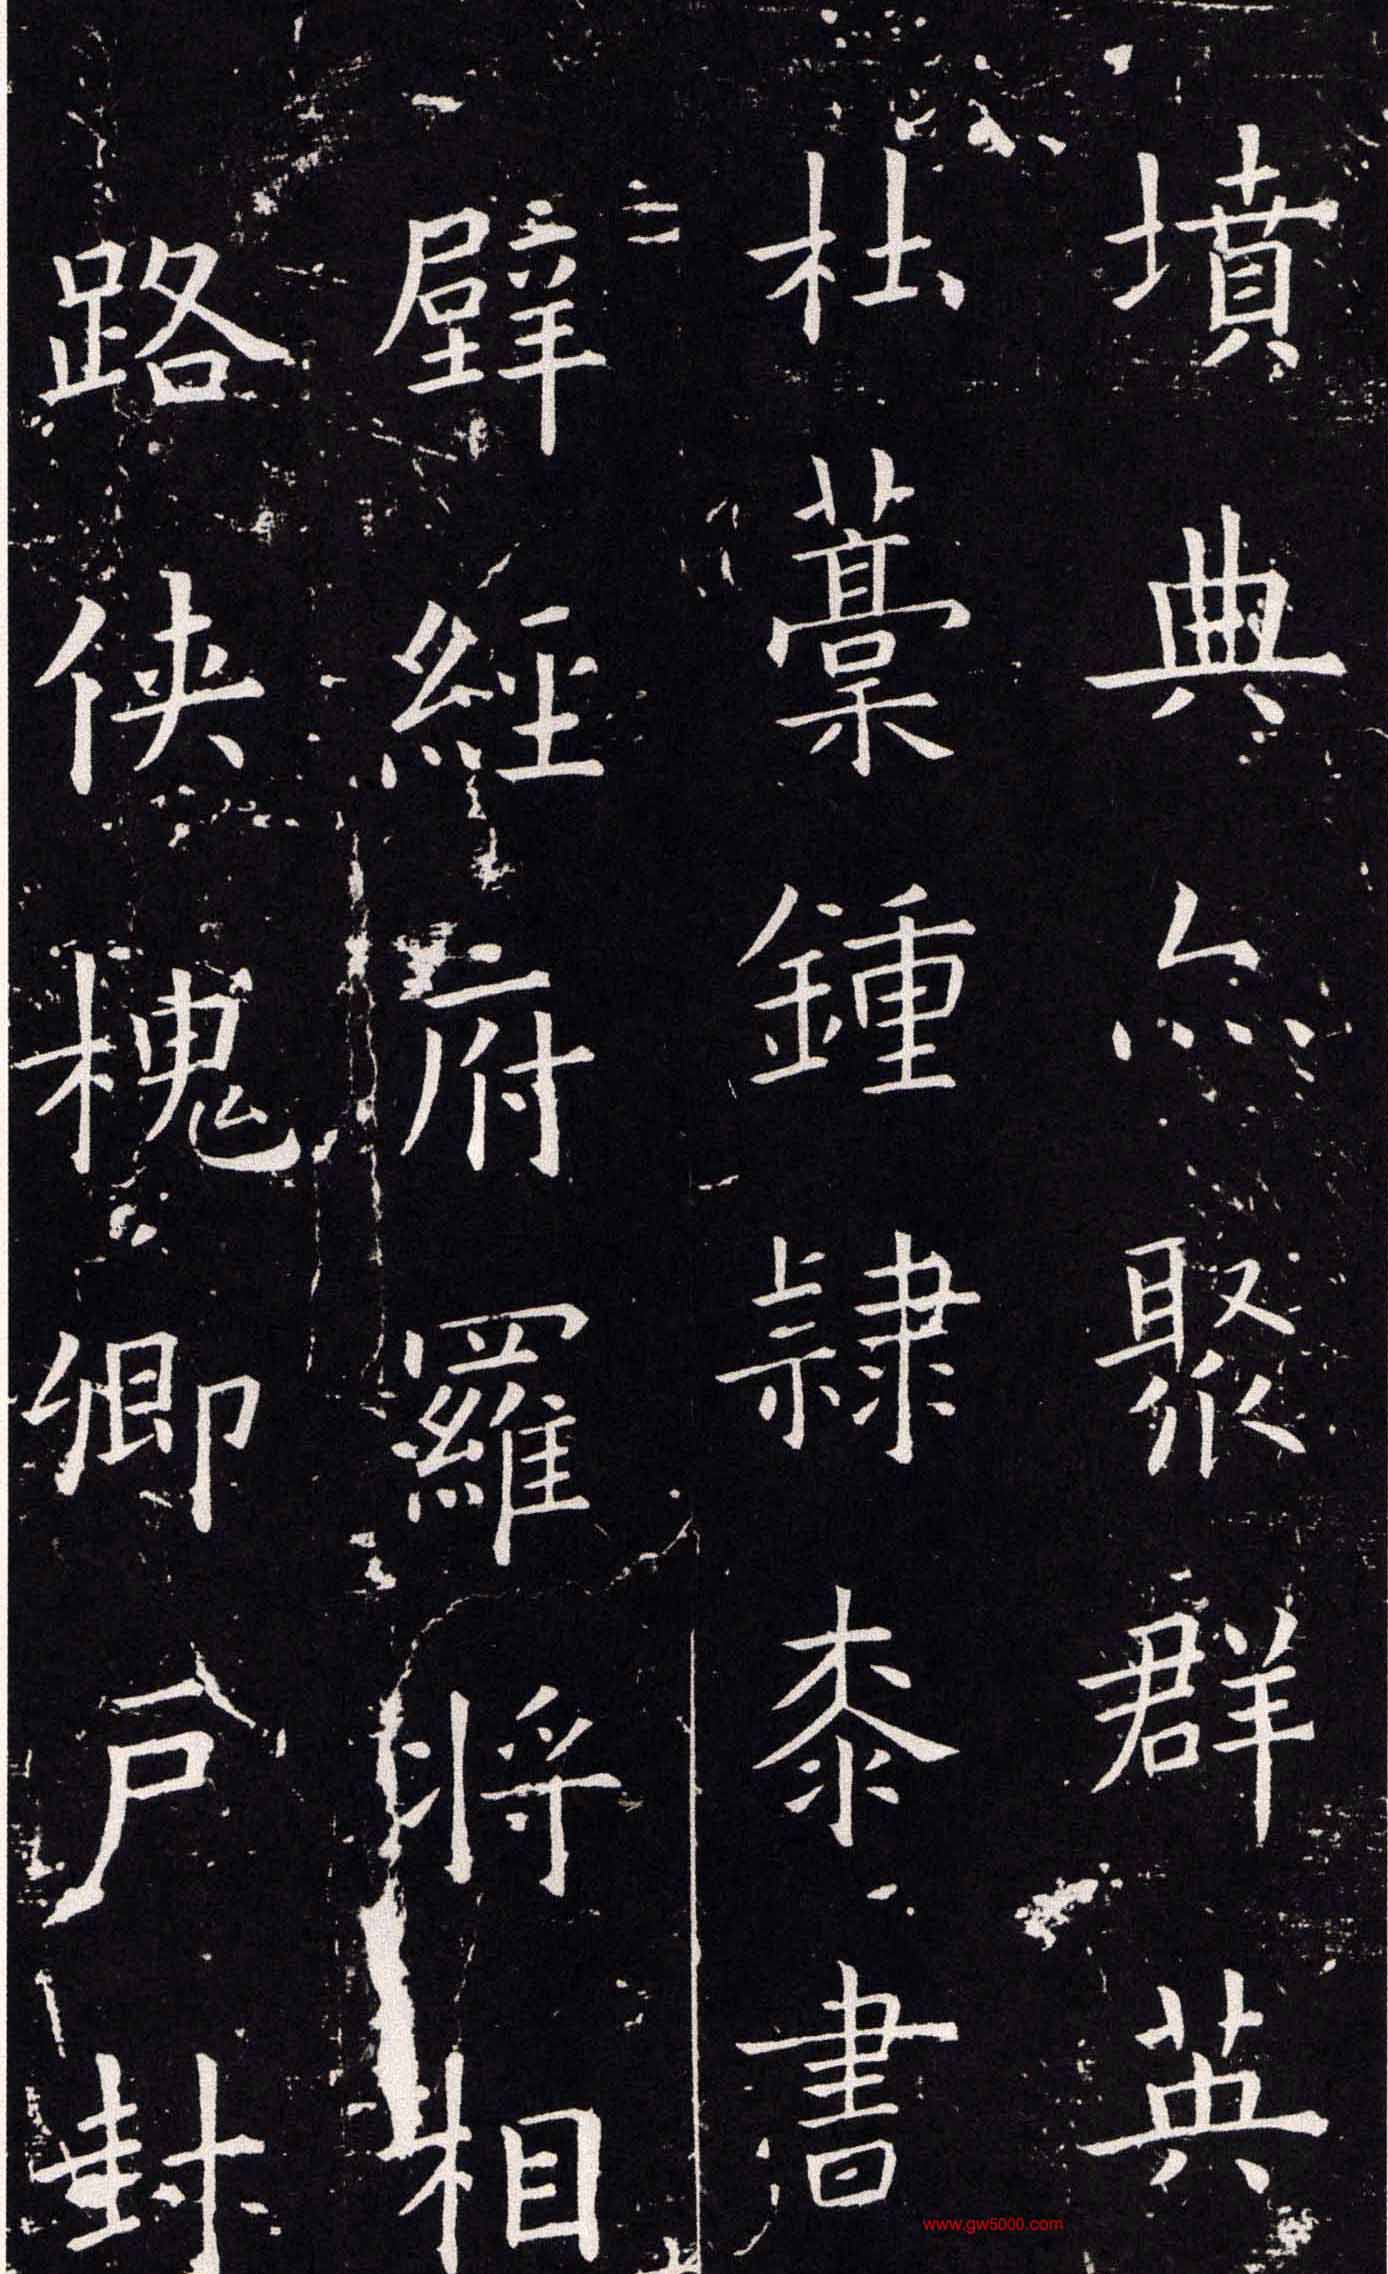 墳典亦聚群英
杜藁鍾隷柰書
壁經府羅将相
路俠槐卿户封
www.gw5000.com